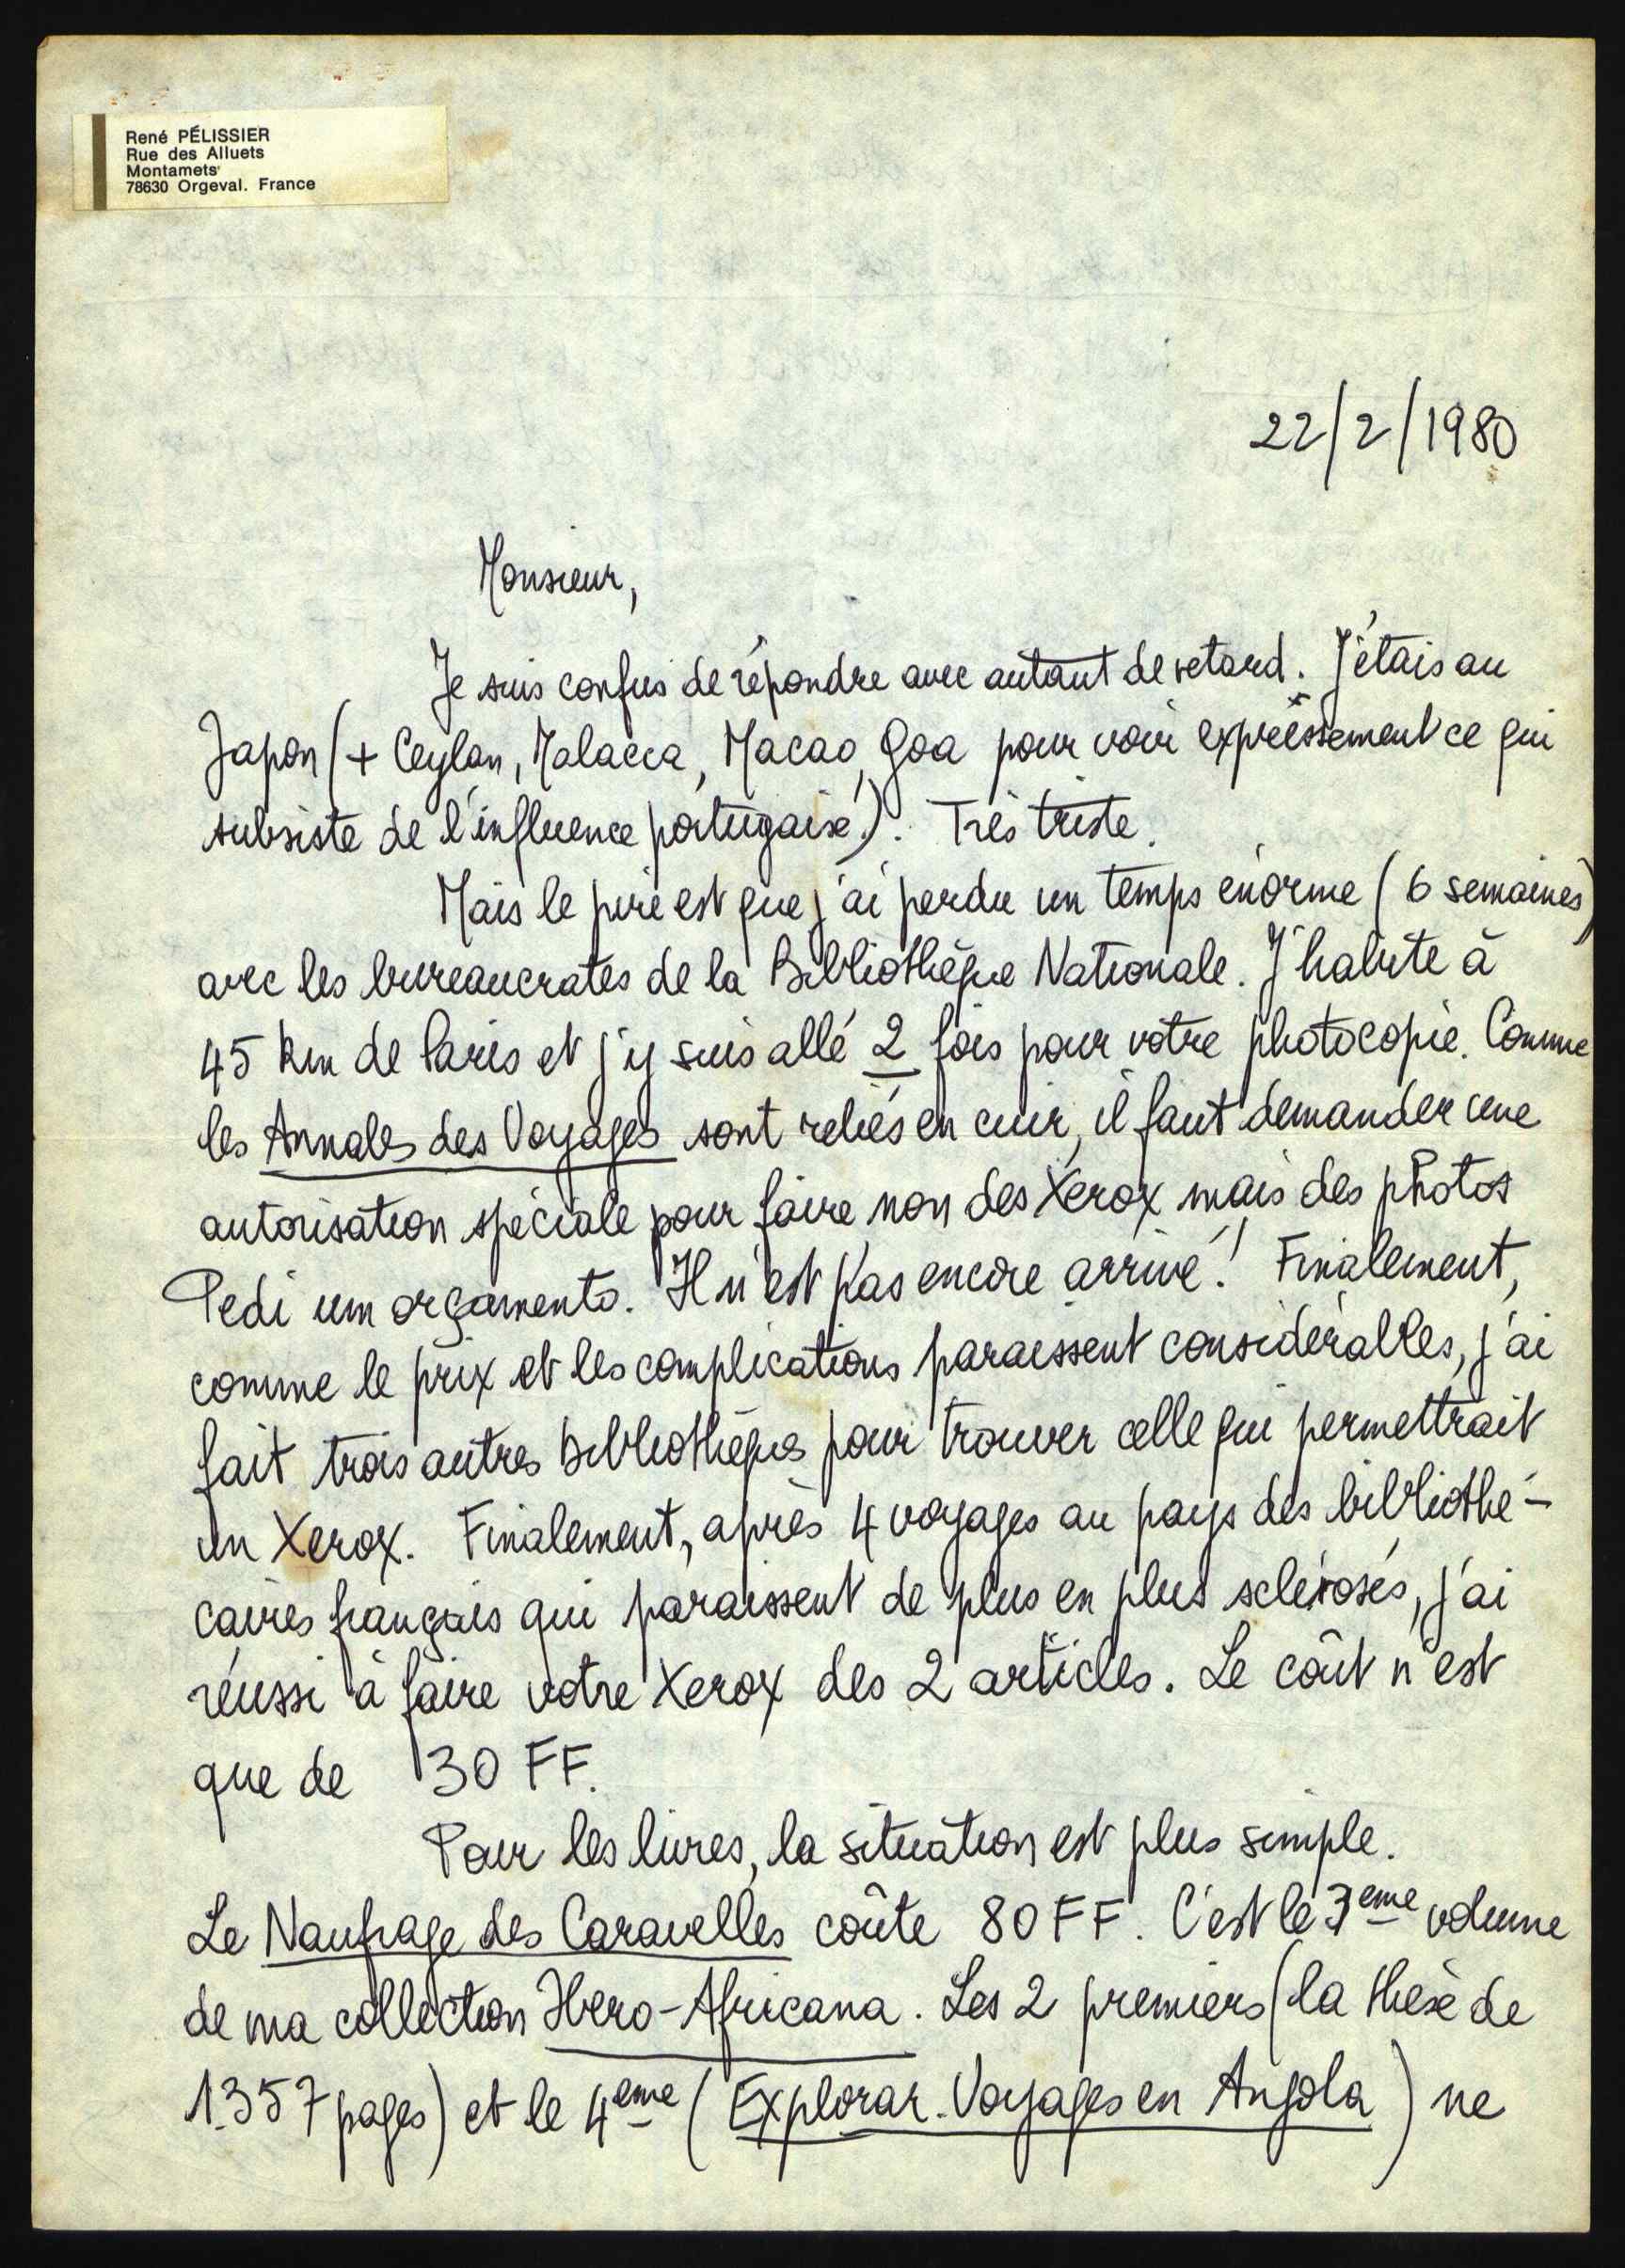 René PÉLISSIER
Rue des Alluets
Montamets
78630 Orgeval. France
22/2/1980
Monsieur,
Je suis confus de répondre avec autant de retard. J'étais au
Japon (+ Ceylan, Malacca, Macao, Goa pour voir expréssement ce qui
subsiste de l'influence portugaise). Très triste.
Mais le pire est que j'ai perdu un temps énorme (6 semaines)
avec les bureaucrates de la Bibliothèque Nationale. J'habite à
45 km de Paris et j'y suis allé 2 fois pour votre photocopie. Comme
les Annales des Voyages sont reliés en cuir, il faut demander une
autorisation spéciale pour faire non des Xerox mais des photos
Pedi um orçamento. Il n'est pas encore arrivé! Finalement,
comme le prix et les complications paraissent considérables, j'ai
fait trois autres Bibliothèques pour trouver celle qui permettrait
un Xerox. Finalement, après 4 voyages au pays des bibliothé-
caires français qui paraissent de plus en plus sclérosés, j'ai
réussi à faire votre Xerox des 2 articles. Le coût n'est
que de 30 FF.
Pour les livres, la situation est plus simple.
Le Naufrage des Caravelles coûte 80 FF. C'est le 3eme volume
de ma collection Ibero-Africana. Les 2 premiers (la thèse de
1.357 pages) et le 4eme (Explorar. Voyages en Angola) ne